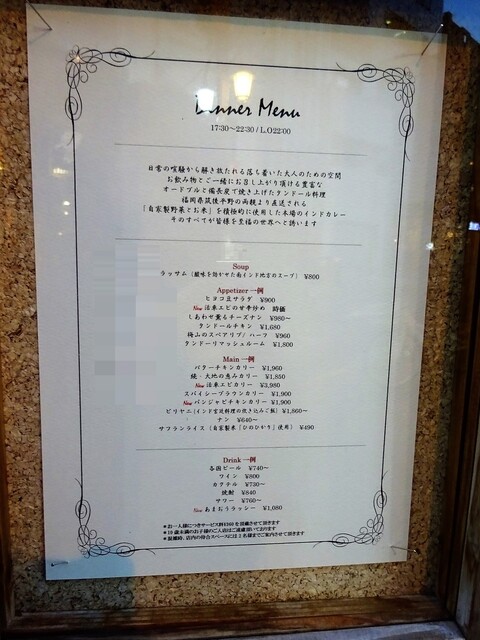 Dinner Menu
17:30～22:30 / L.O22:00
日常の喧騒から解き放たれる落ち着いた大人のための空間
お飲み物とご一緒にお召し上がり頂ける豊富な
オードブルと備長炭で焼き上げたタンドール料理
福岡県筑後平野の両親より直送される
「自家製野菜とお米」を積極的に使用した本場のインドカレー
そのすべてが皆様を至福の世界へと誘います
Soup
ラッサム（酸味を効かせた南インド地方のスープ） ¥800
Appetizer 一例
ヒヨコ豆サラダ ¥900
New 活車エビの甘辛炒め 時価
しあわせ薫るチーズナン ¥980～
タンドールチキン ¥1,680
梅山のスペアリブ / ハーフ ¥960
タンドーリマッシュルーム ¥1,800
Main 一例
バターチキンカリー ¥1,960
続・大地の恵みカリー ¥1,850
New 活車エビカリー ¥3,980
スパイシーブラウンカリー ¥1,900
New パンジャビチキンカリー ¥1,900
ビリヤニ（インド宮廷料理の炊き込みご飯） ¥1,860～
ナン ¥640～
サフランライス（自家製米「ひのひかり」使用） ¥490
Drink 一例
各国ビール ¥740～
ワイン ¥800
カクテル ¥730～
焼酎 ¥840
サワー ¥760～
New あまおうラッシー ¥1,080
＊お一人様につきサービス料¥360を頂戴させて頂きます
＊10歳未満のお子様のご入店はご遠慮頂いております
＊混雑時、店内の待合スペースには2名様までご案内させて頂きます